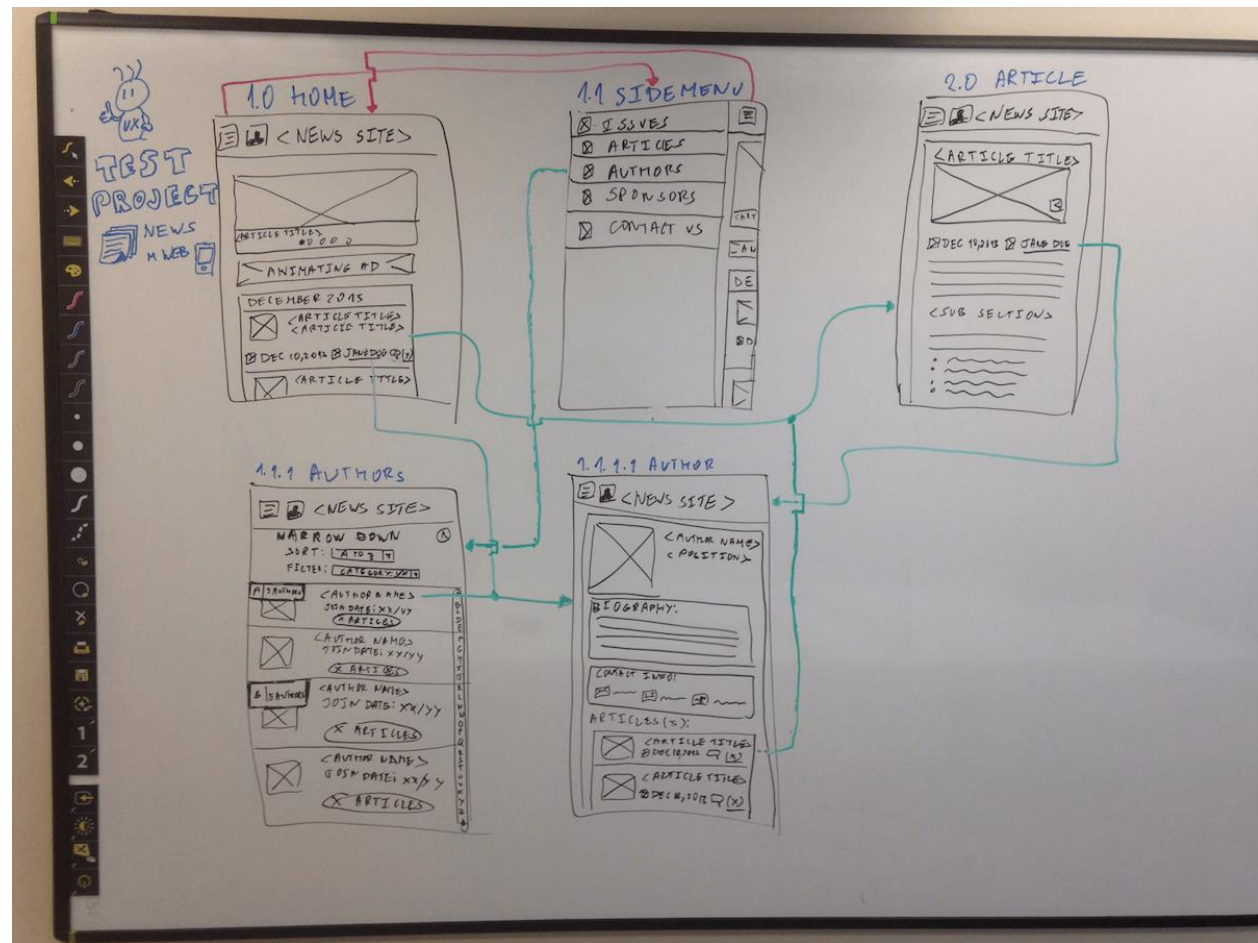 UX
TEST
PROJECT
NEWS
M WEB
1
2
1.0 HOME
<NEWS SITE>
<ARTICLE TITLE>
ANIMATING AD
DECEMBER 2013
<ARTICLE TITLE>
<ARTICLE TITLE>
DEC 10, 2013 JANE DOE (x)
<ARTICLE TITLE>
1.1 SIDEMENU
ISSUES
ARTICLES
AUTHORS
SPONSORS
CONTACT US
<ART
DE
2.0 ARTICLE
<NEWS SITE>
<ARTICLE TITLE>
DEC 10, 2013 JANE DOE
<SUB SECTION>
1.1.1 AUTHORS
<NEWS SITE>
NARROW DOWN
SORT: A TO Z
FILTER: CATEGORY: XX
A 3 AUTHORS
<AUTHOR NAME>
JOIN DATE: XX/YY
X ARTICLES
<AUTHOR NAME>
JOIN DATE: XX/YY
X ARTICLES
<AUTHOR NAME>
JOIN DATE: XX/YY
X ARTICLES
<AUTHOR NAME>
JOIN DATE: XX/YY
X ARTICLES
1.1.1.1 AUTHOR
<NEWS SITE>
<AUTHOR NAME>
<POSITION>
BIOGRAPHY:
CONTACT INFO:
ARTICLES(5):
<ARTICLE TITLE>
DEC 10, 2013 (x)
<ARTICLE TITLE>
(x)